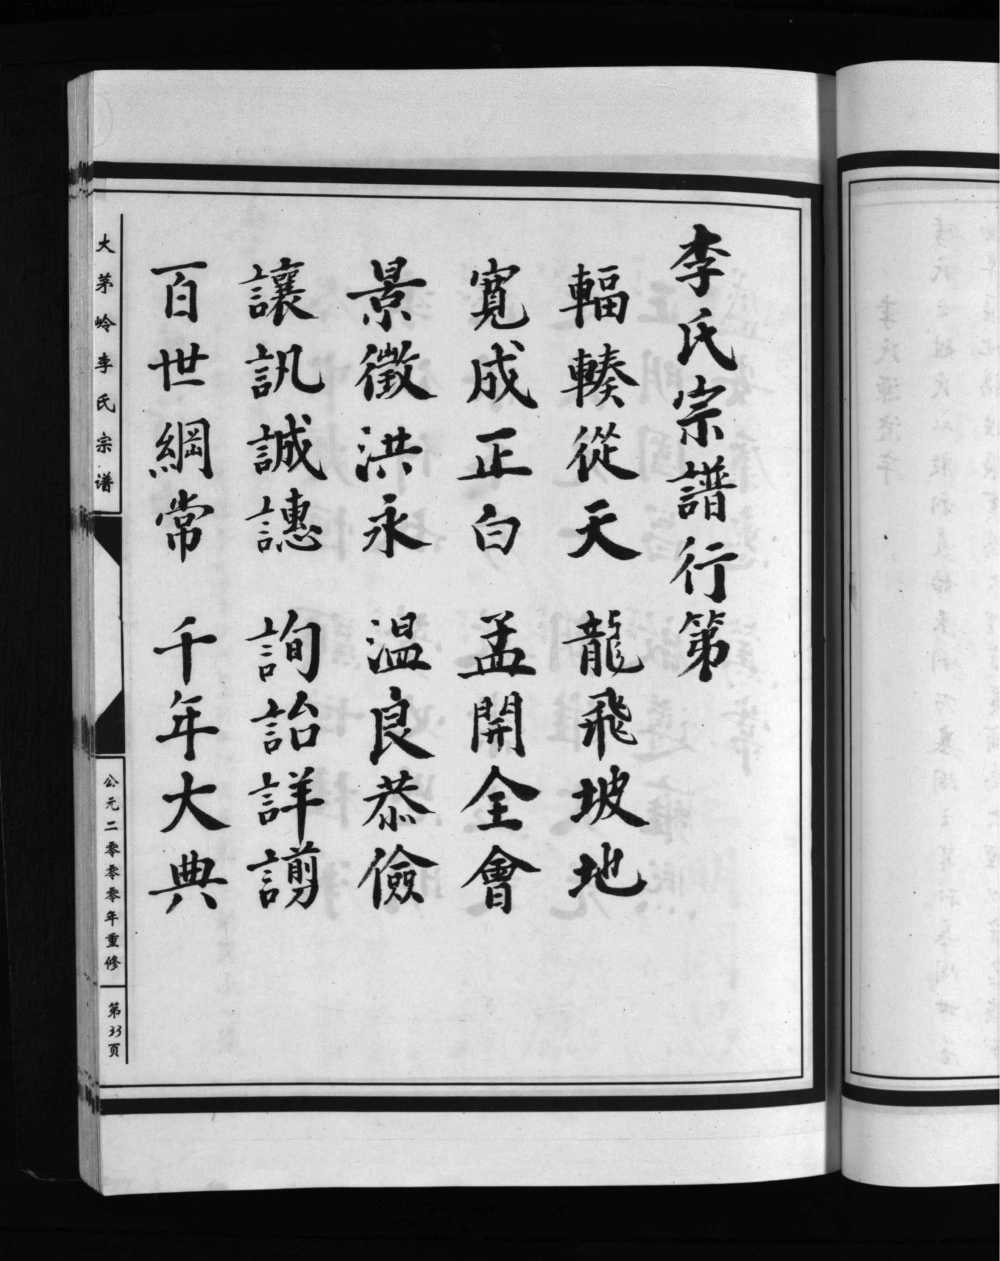 李氏宗譜行第
輻輳從天　龍飛坡地
寬成正白　孟開全會
景徵洪永　温良恭儉
讓訊誠譓　詢詒詳謭
百世綱常　千年大典
大茅岭李氏宗谱
公元二零零零年重修
第33页